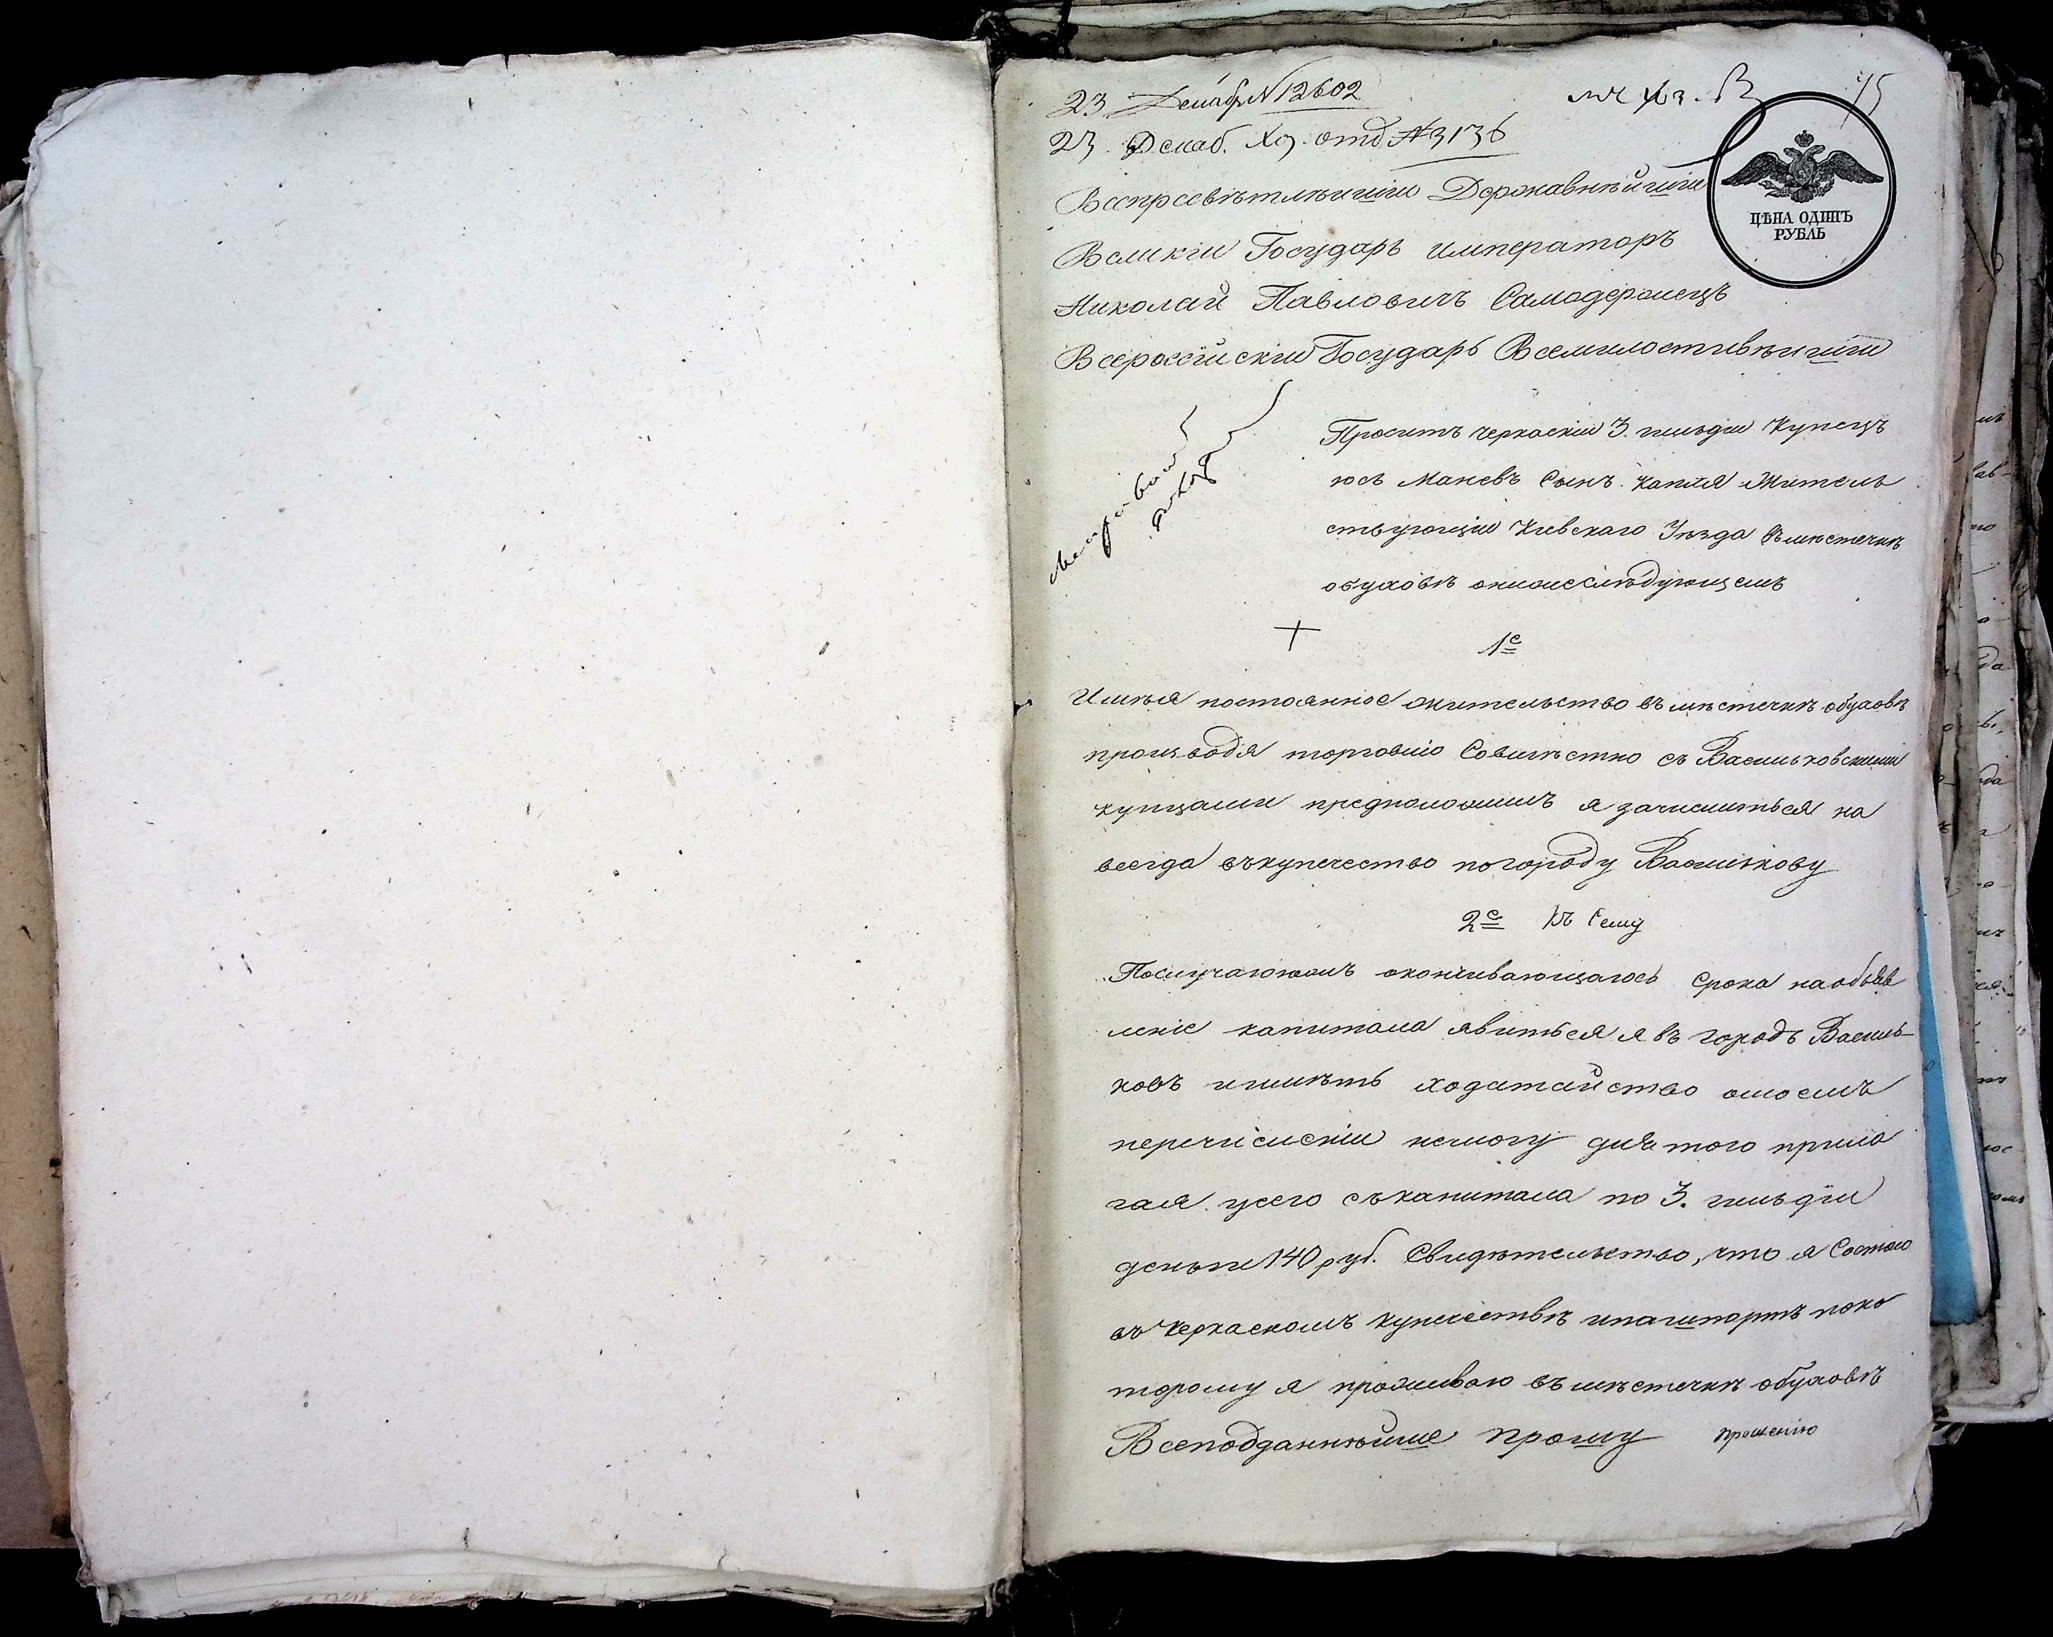 23 Декабр N 12602
23 Декаб. Хоз. отд. N 3136
75
ЦѢНА ОДИНЪ
РУБЛЬ
Всепресвѣтлѣишіи Державнѣйшіи
Великіи Государь императоръ
Николай Павловичъ Самодержецъ
Всероссійскіи Государь Всемилостивѣишіи
Проситъ Черкаскіи 3. гильдіи Купецъ
юсь Маневъ Сынъ Капля Житель
ствующіи Кіевскаго Уѣзда Вмѣстечкѣ
обуховѣ онижеслѣдующемъ
1е
Имѣя постоянное жительство въ мѣстечкѣ обуховѣ
производя торговлю Совмѣстно съ Васильковскими
купцами предположилъ я зачислиться на
всегда въкупечество погороду Василькову
2е Къ Сему
Послучаю окончивающагось Срока наобъяв
леніе капитала явиться я въ городъ Василь-
ковъ иимѣть ходатайство омоемъ
перечисленіи немогу для того прила
гая усего съкапитала по 3. гильдіи
деньги 140 руб. Свидѣтельство, что я Состою
въ Черкаскомъ купечествѣ ипашпортъ поко
торому я проживаю въ мѣстечкѣ обуховѣ
Всеподданнѣйше прошу прошенію